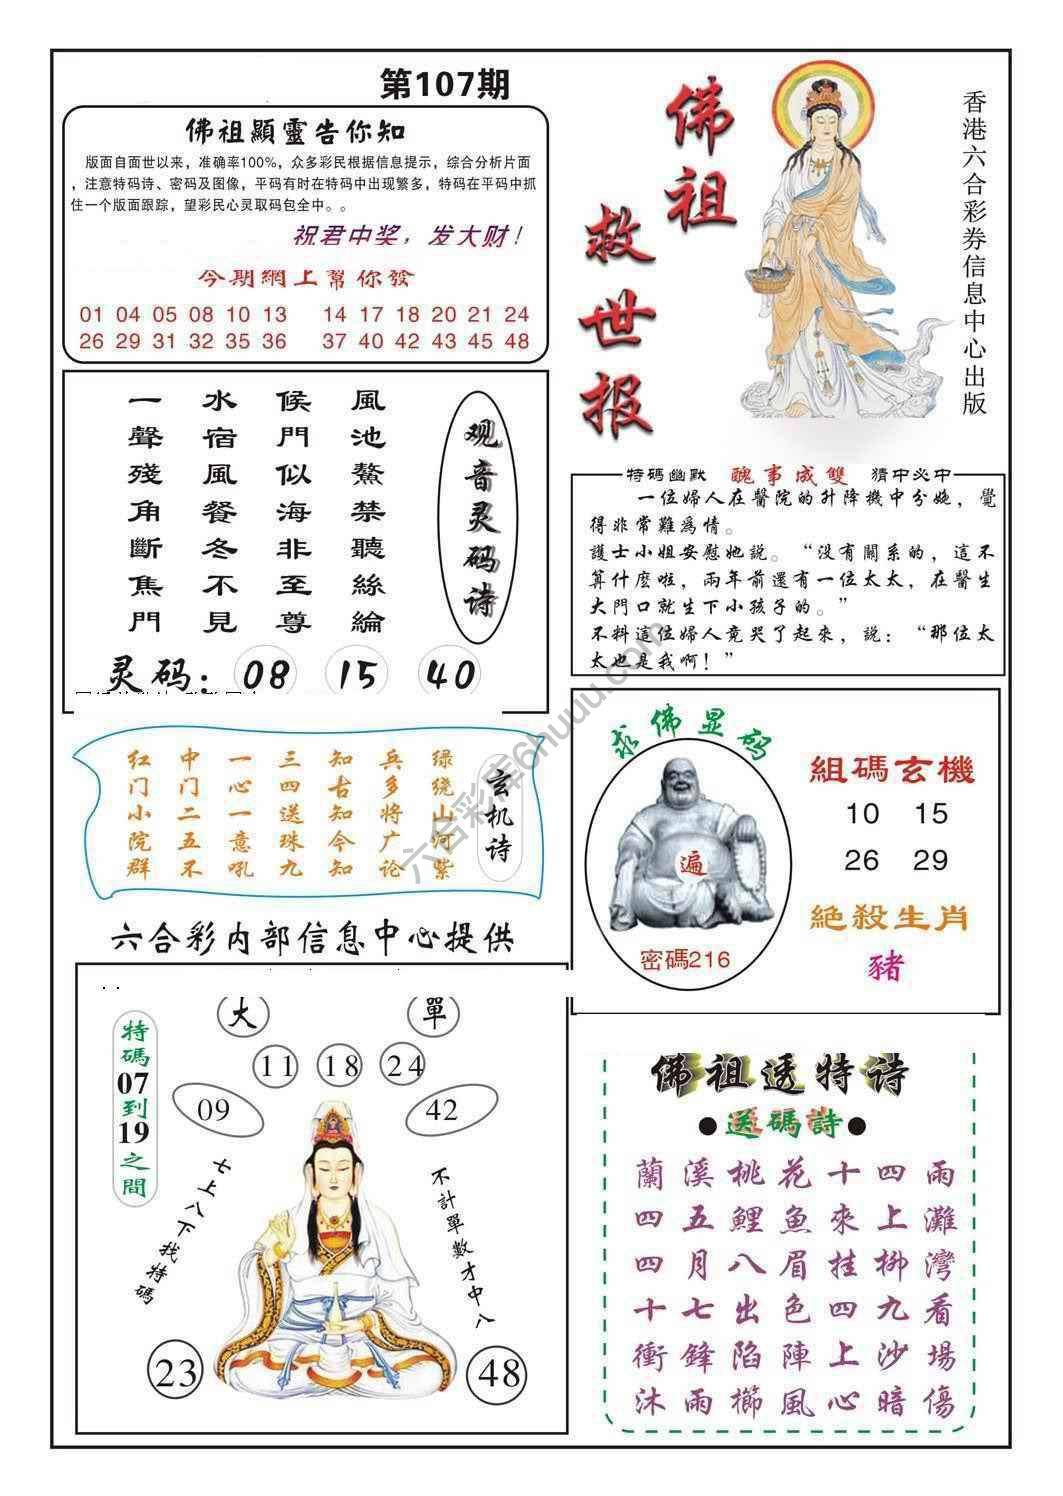 第107期
佛祖顯靈告你知
版面自面世以来，准确率100%，众多彩民根据信息提示，综合分析片面
，注意特码诗、密码及图像，平码有时在特码中出现繁多，特码在平码中抓
住一个版面跟踪，望彩民心灵取码包全中。。
祝君中奖，发大财！
今期網上幫你發
01 04 05 08 10 13 14 17 18 20 21 24
26 29 31 32 35 36 37 40 42 44 45 48
佛祖
救世报
香港六合彩券信息中心出版
風池鰲禁聽絲綸
候門似海非至尊
水宿風餐冬不見
一聲殘角斷焦門
观音灵码诗
灵码：08 15 40
特碼幽默 醜事成雙 猜中必中
一位婦人在醫院的升降機中分娩，覺
得非常難為情。
護士小姐安慰她說。“没有關系的，這不
算什麼啦，兩年前還有一位太太，在醫生
大門口就生下小孩子的。”
不料這位婦人竟哭了起來，説：“那位太
太也是我啊！”
玄机诗
绿绕山河紫
兵多将广论
知古知今知
三四送珠九
一心一意吼
中门二五不
红门小院群
求佛显码
遍
密碼216
組碼玄機
10 15
26 29
絕殺生肖
豬
六合彩内部信息中心提供
大 單
特碼07到19之間
11 18 24
09 42
七上八下找特碼
不計單數才中八
23 48
佛祖透特诗
●送碼詩●
蘭溪桃花十四雨
四五鯉魚來上灘
四月八眉挂柳灣
十七出色四九看
衝鋒陷陣上沙場
沐雨櫛風心暗傷
六合彩库6huuu.com